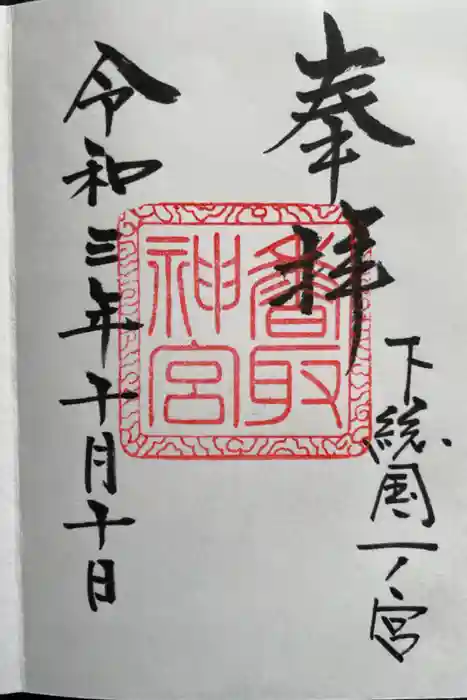 奉拝
下総国一ノ宮
香取
神宮
令和三年十月十日